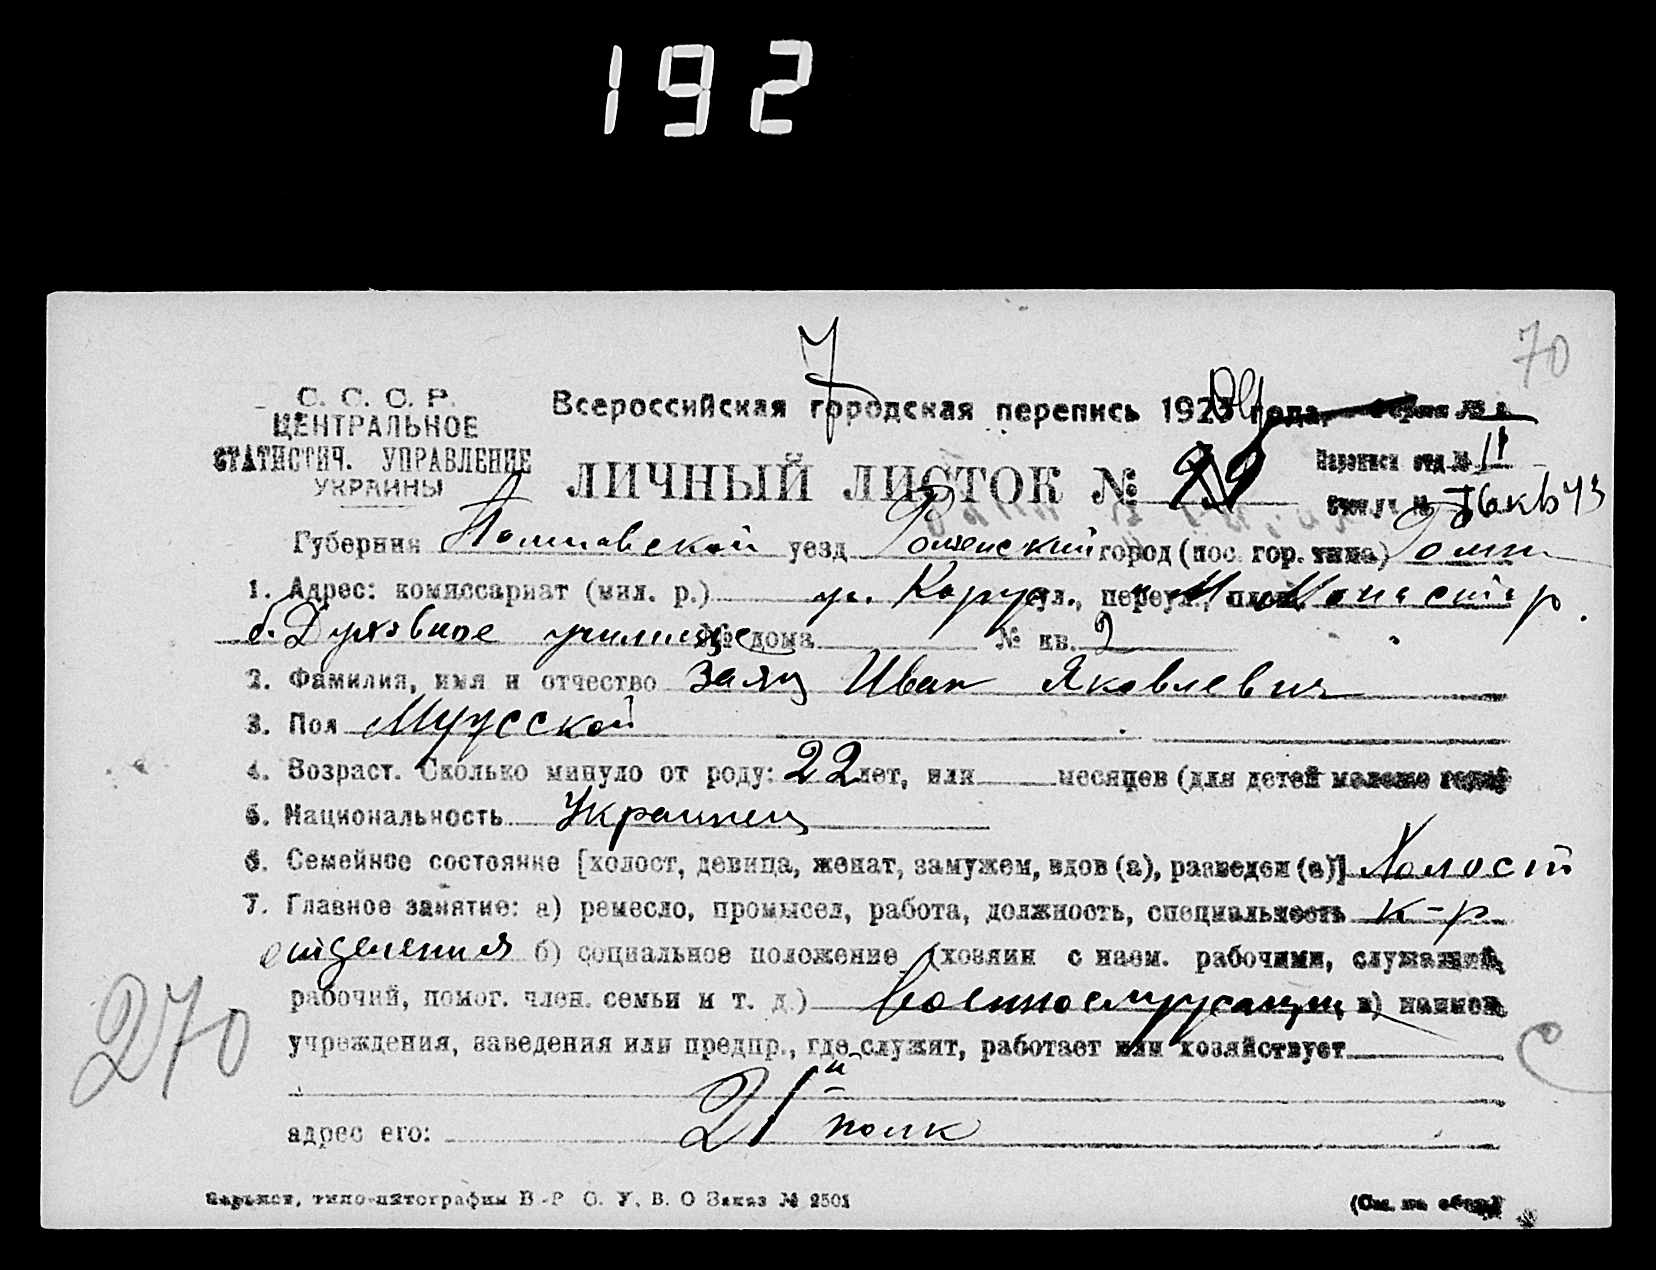 192
70
7
С. С. С. Р.
ЦЕНТРАЛЬНОЕ
СТАТИСТИЧ. УПРАВЛЕНИЕ
УКРАИНЫ
Всероссийская городская перепись 1923 года. Серия № 2
ЛИЧНЫЙ ЛИСТОК №
Переписн отд № II
Счетн. уч. №
Губерния Полтавской уезд Роменский город (пос. гор. типа) Ромны
1. Адрес: комиссариат (мил. р.) ул., переул., площ. Монастыр
б. Духовное училище № дома № кв. 2
2. Фамилия, имя и отчество Заяц Иван Яковлевич
3. Пол Мужской
4. Возраст. Сколько минуло от роду: 22 лет, или месяцев (для детей моложе года)
5. Национальность Украинец
6. Семейное состояние [холост, девица, женат, замужем, вдов (а), разведен (а)] Холост
7. Главное занятие: а) ремесло, промысел, работа, должность, специальность к-р
отделения б) социальное положение (хозяин с наем. рабочими, служащий,
рабочий, помог. член. семьи и т. д.) Военнослужащий в) наимен.
учреждения, заведения или предпр., где служит, работает или хозяйствует
270
С
адрес его: 21й полк
Харьков, типо-литографии В-Р С. У. В. О Заказ № 2501
(См. на обор.)